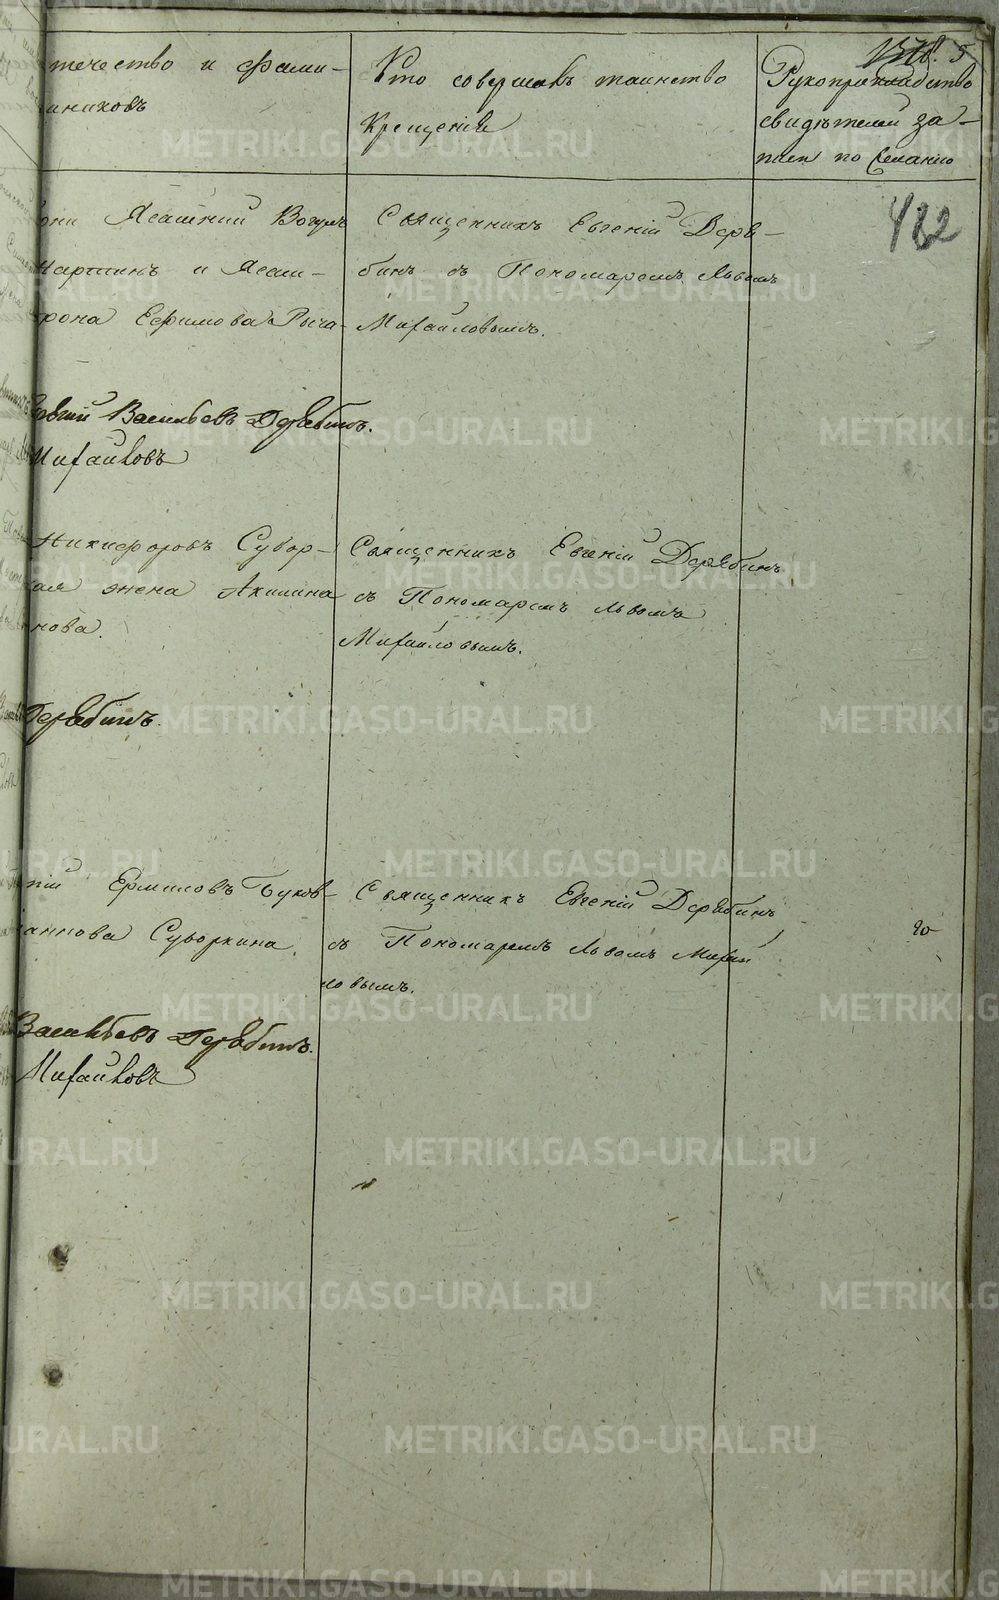 течество и фами-
никовъ
Кто совершалъ таинство
Крещенія
Рукоприкладство
свидѣтелей за-
писи по желанію
5
482
Ясашний Вогулъ
Мартинъ и Ясаш-
рона Ефимова Рыча-
Священникъ Евгеній Деря-
бинъ съ Пономаремъ Львомъ
Михайловымъ.
Васильевъ Дерябинъ.
Михайловъ
Никифоровъ Сувор-
кая жена Акилина
нова.
Священникъ Евгеній Дерябинъ
съ Пономаремъ Львомъ
Михайловымъ.
Дерябинъ.
Ермиловъ Буков-
аннова Суворкина
Священникъ Евгеній Дерябинъ
съ Пономаремъ Львомъ Михай
ловымъ.
Васильевъ Дерябинъ.
Михайловъ
METRIKI.GASO-URAL.RU